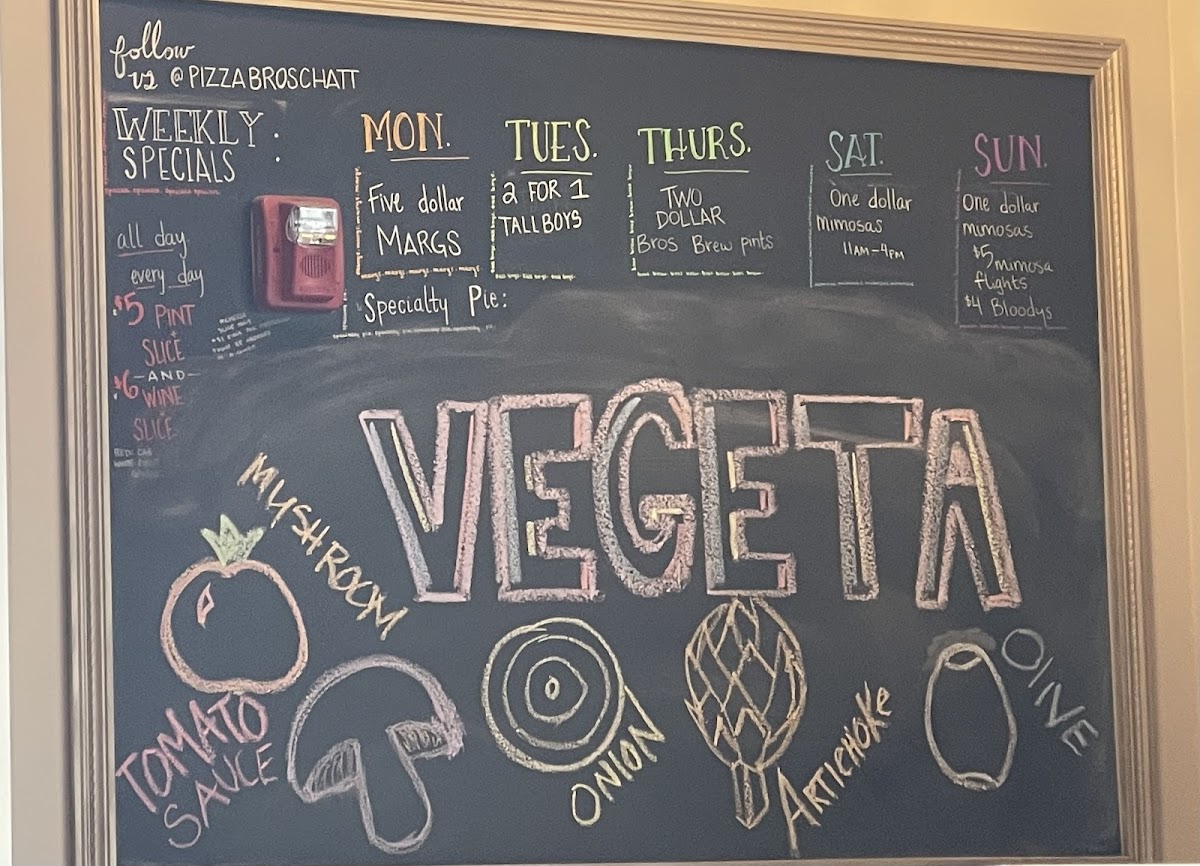 follow
us @PIZZABROSCHATT
WEEKLY
SPECIALS :
all day
every day
$5 PINT
&
SLICE
-AND-
$6 WINE
&
SLICE
MON.
Five dollar
MARGS
TUES.
2 FOR 1
TALLBOYS
THURS.
TWO
DOLLAR
Bros Brew pints
SAT.
One dollar
mimosas
11AM-4PM
SUN.
One dollar
mimosas
$5 mimosa
flights
$4 Bloodys
Specialty Pie:
VEGETA
TOMATO
SAUCE
MUSHROOM
ONION
ARTICHOKE
OLIVE